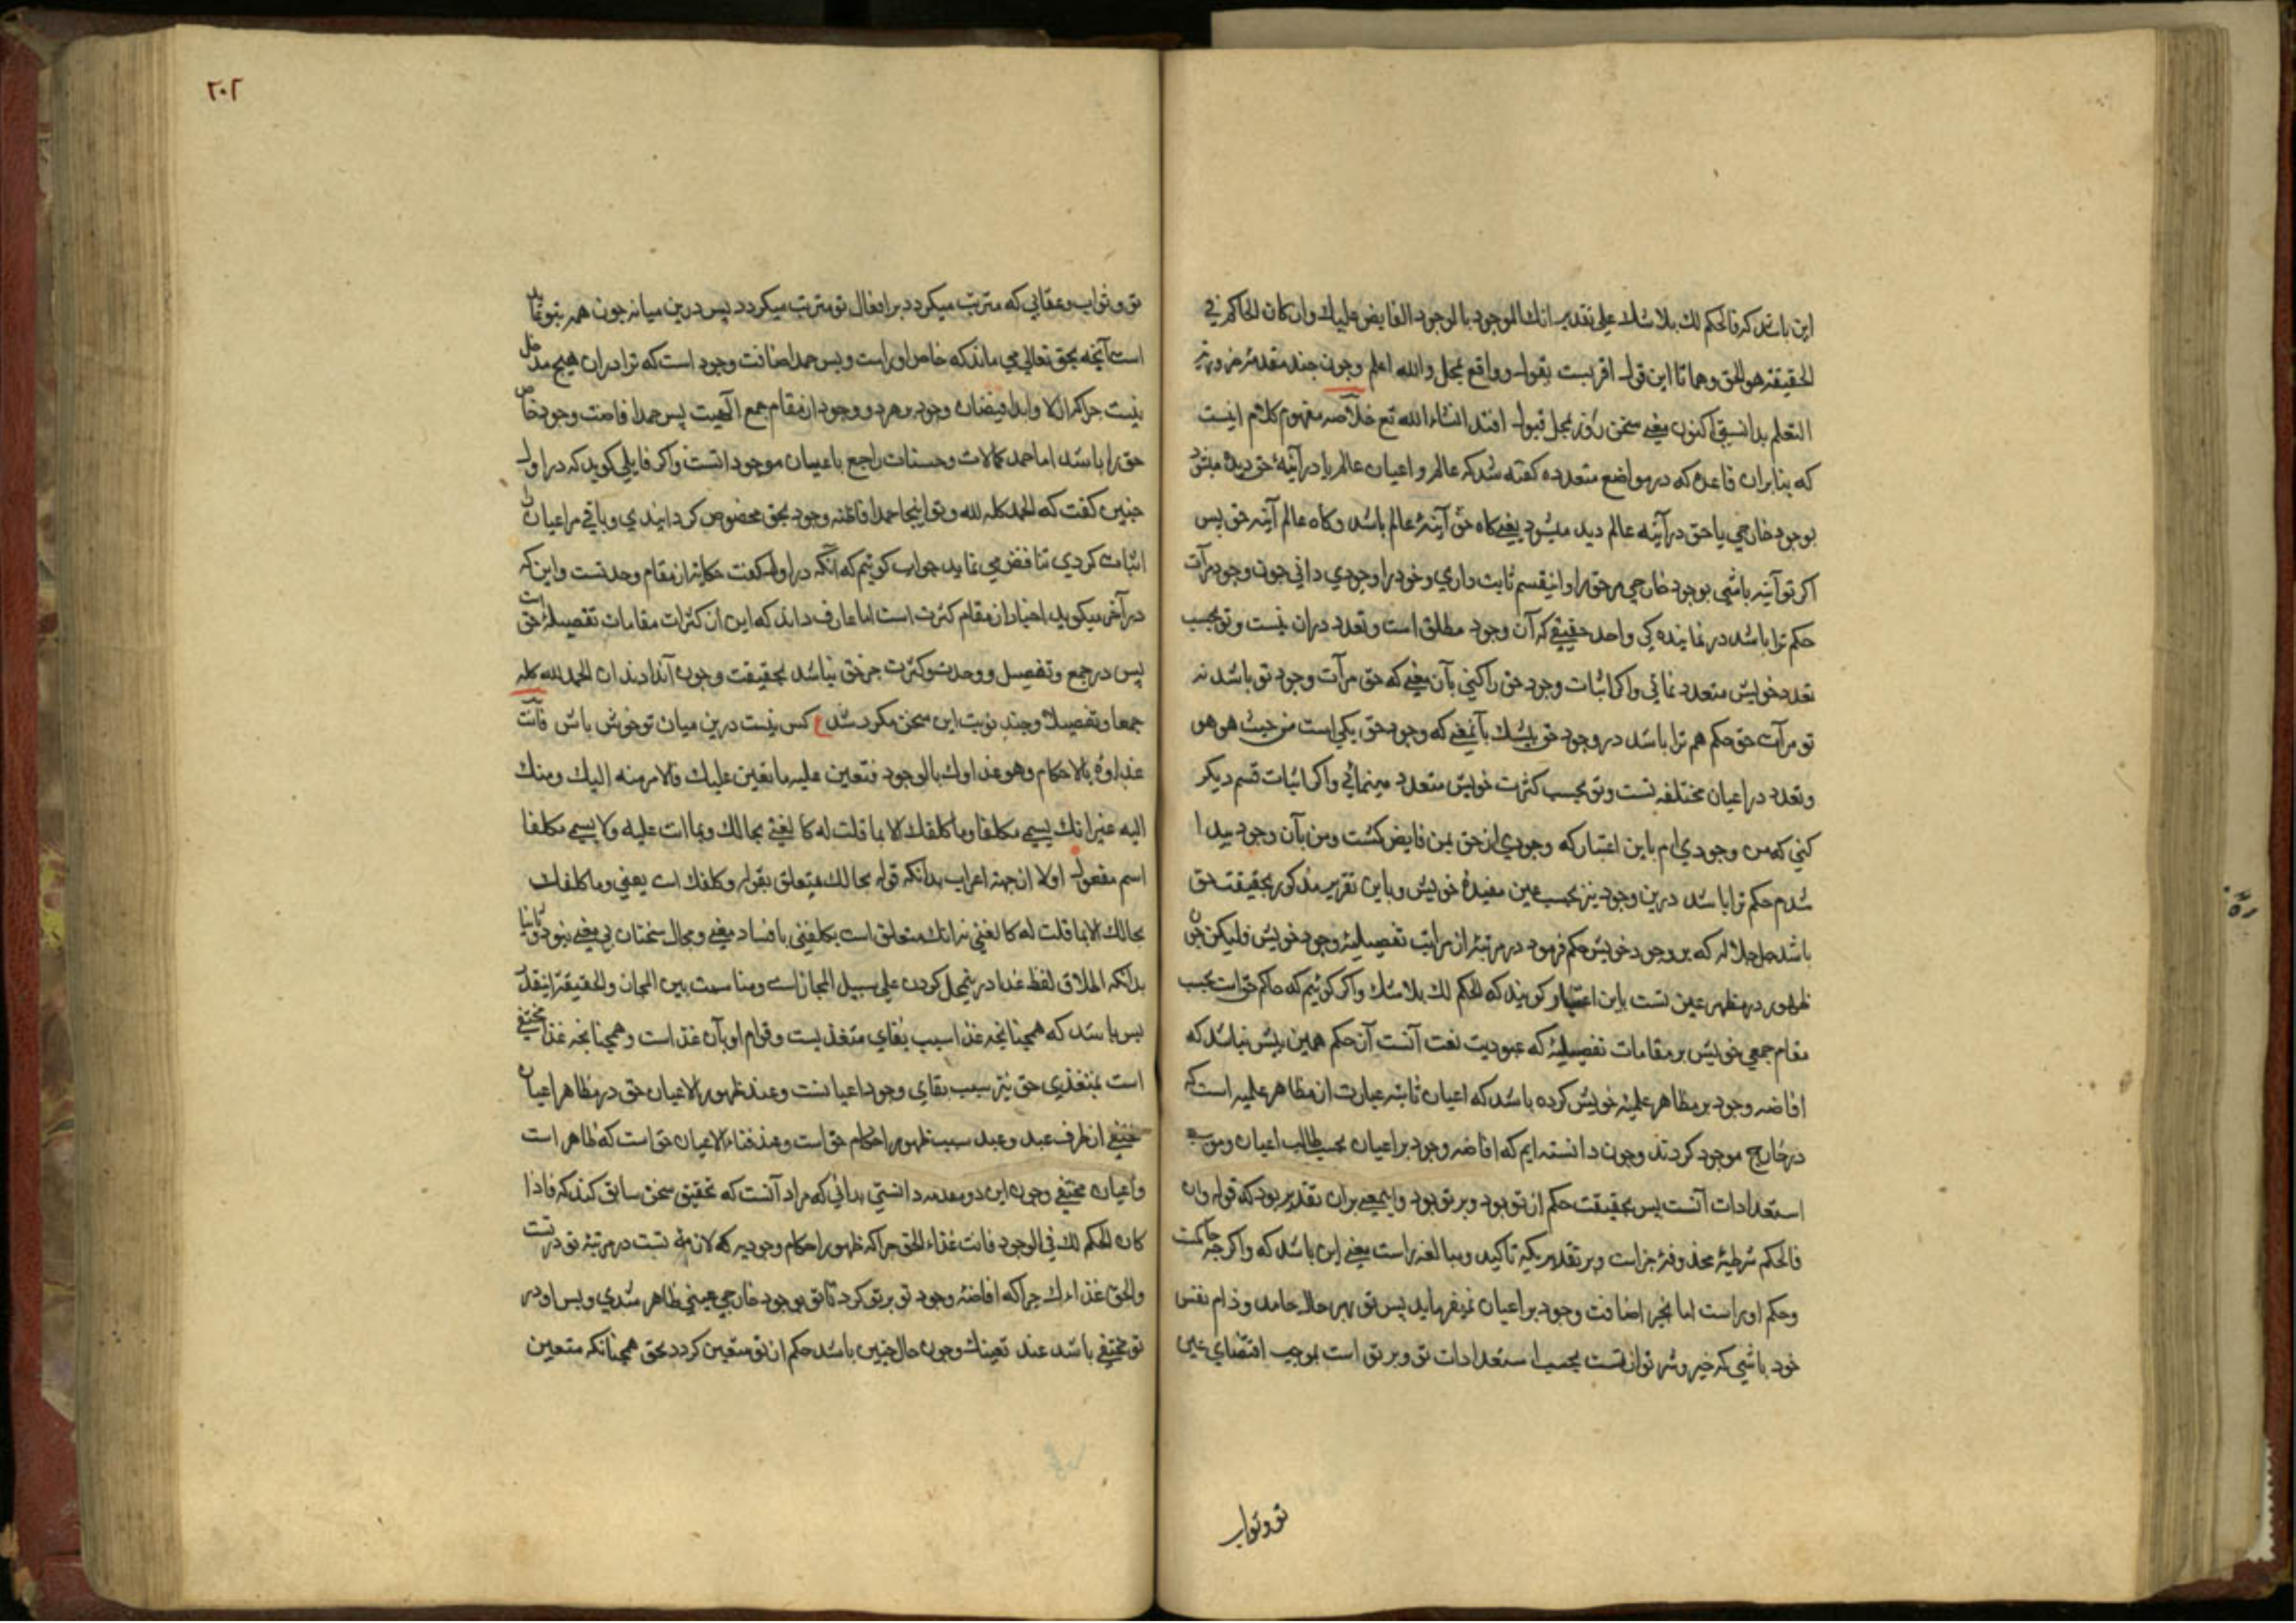 این باشد که فالحکم لك بلا شك علی تقدیر انك الموجود بالوجود الفایض علیك وان کان الحاکم فی
الحقیقة هو الحق وهمانا این قول اقربست بقول وواقع بمحل والله اعلم وچون چند مقدمۀ
التعلم بدانستی اکنون یعنی سخن بمحل قبول افتد انشاء الله تع خلاصه مفهوم کلام اینست
که بنابران قاعده که در مواضع متعدده کفته شد که عالم و اعیان عالم یا در آینۀ حق دیده میشود
بوجود خارجی یا حق در آینه عالم دید میشود یعنی کاه حق آینۀ عالم باشد وکاه عالم آینه حق پس
اکر تو آینه باشی بوجود خارجی مر حق را وانیقسم ثابت داری وخود را وجودی دانی چون وجود مرآت
حکم ترا باشد در نماینده کی واحد حقیقی که آن وجود مطلق است وتعدد دران نیست وتو بحسب
تعدد خویش متعدد نمائی واکر اثبات وجود حق را کنی بآن معنی که حق مرآت وجود تو باشد نه
تو مرآت حق حکم هم ترا باشد در وجود حق بیشك بآنمعنی که وجود حق یکی است من حیث هو هو
وتعدد در اعیان مختلفه تست وتو بحسب کثرت خویش متعدد مینمائی واکر اثبات قسم دیکر
کنی که من وجودی ام باین اعتبار که وجودی از حق بمن فایض کشت ومن بآن وجود پیدا
شدم حکم ترا باشد درین وجود نیز بحسب عین مقیدۀ خویش وباین تقریر مذکور بحقیقت حق
باشد جل جلاله که بر وجود خویش حکم فرمود در مرتبۀ از مراتب تفصیلیۀ وجود خویش ولیکن چون
ظهور در مظهر عین تست باین اعتبار کویند که الحکم لك بلا شك واکر کوئیم که حاکم حق است بحسب
مقام جمعی خویش بر مقامات تفصیلیۀ که عبودیت نعت آنست آن حکم همین بیش نباشد که
افاضه وجود بر مظاهر علمیۀ خویش کرده باشد که اعیان ثابته عبارت از مظاهر علمیه است که
در خارج موجود کردند وچون دانسته ایم که افاضه وجود بر اعیان بحسب طالب اعیان وموجب
استعدادات آنست پس بحقیقت حکم از تو بود وبر تو بود واینمعنی بران تقدیر بود که قوله وان
فالحکم شرطیۀ محذوفۀ جزاست وبر تقدیر یکه تاکید ومبالغه راست معنی این باشد که واکر چه حاکمست
وحکم او راست اما بخیر اضافت وجود بر اعیان نمیفرماید پس تو بهر حال حامد وذام نفس
خود باشی که خیر وشر تو از تست بحسب استعدادات تو وبر تو است بموجب اقتضای عین
تو وثواب
٢٠٢
تو وثواب وعقابی که مترتب میکردد بر افعال تو مترتب میکردد پس درین میانه چون همه بتو
است آنچه بحق تعالی می ماند که خاص او راست وبس حمد اضافت وجود است که ترا دران هیچ مدخل
نیست چرا که ازلا وابدا فیضان وجود بر هر دو وجود از مقام جمع الهیت پس حمد افاضت وجود خاص
حق را باشد اما حمد کمالات وحسنات راجع باعیان موجود انست واکر قایلی کوید که در اول
چنین کفت که الحمد کله لله وتو اینجا حمد افاضه وجود بحق مخصوص کردانیدی وباقی مر اعیان را
اثبات کردی تناقض می نماید جواب کوئیم که آنکه در اول کفت حکایة از مقام وحدتست واین که
در آخر میکوید اخبار از مقام کثرت است اما عارف داند که این از کثرات مقامات تفصیلۀ حق است
پس در جمع وتفصیل ووحدت وکثرت جز حق نباشد بحقیقت وچون آندادند ان الحمد لله کله
جمعا وتفصیلا وچند نوبت این سخن مکرر شد ع کس نیست درین میان تو خوش باش فانت
غذاؤه بالاحکام وهو غذاوك بالوجود فتعین علیه ما تعین علیك فالامر منه الیك ومنك
الیه غیر انك یسمی مکلفا وما کلفك الا بما قلت له کلفنی بحالك وبما انت علیه ولا یسمی مکلفا
اسم مفعول اولا از جهة اعراب بدانکه قوله بحالك متعلق بقوله وکلفك است یعنی وما کلفك
بحالك الا بما قلت له کلفنی نه انك متعلق است بکلفنی با فساد معنی ومجال سخنان بی معنی نبود وثانیا
بدانکه اطلاق لفظ غذا در محل کردن علی سبیل المجاز است ومناسبت بین المجاز والحقیقة اینقدر
بس باشد که همچنانچه غذا سبب بقای متغذیست وقوام او بآن غذاست وهمچنانچه غذا مختفی
است بمتغذی حق نیز سبب بقای وجود اعیانست وعند ظهور الاعیان حق در مظاهر اعیان
مختفی از طرف عبد وعبد سبب ظهور احکام حق است وعند فناء الاعیان حق است که ظاهر است
واعیان مختفی وچون این دو مقدمه دانستی بدانی که مراد آنست که تحقیق سخن سابق کند که فاذا
کان الحکم لك فی الوجود فانت غذاء الحق چرا که ظهور احکام وجودیه که لازمۀ تست در مرتبۀ تو در تست
والحق غذاءك چرا که افاضۀ وجود تو بر تو کرد تا تو بوجود خارجی عینی ظاهر شدی وپس او در
تو مختفی باشد عند تعینك وچون حال چنین باشد حکم از تو متعین کردد بحق همچنانکه متعین